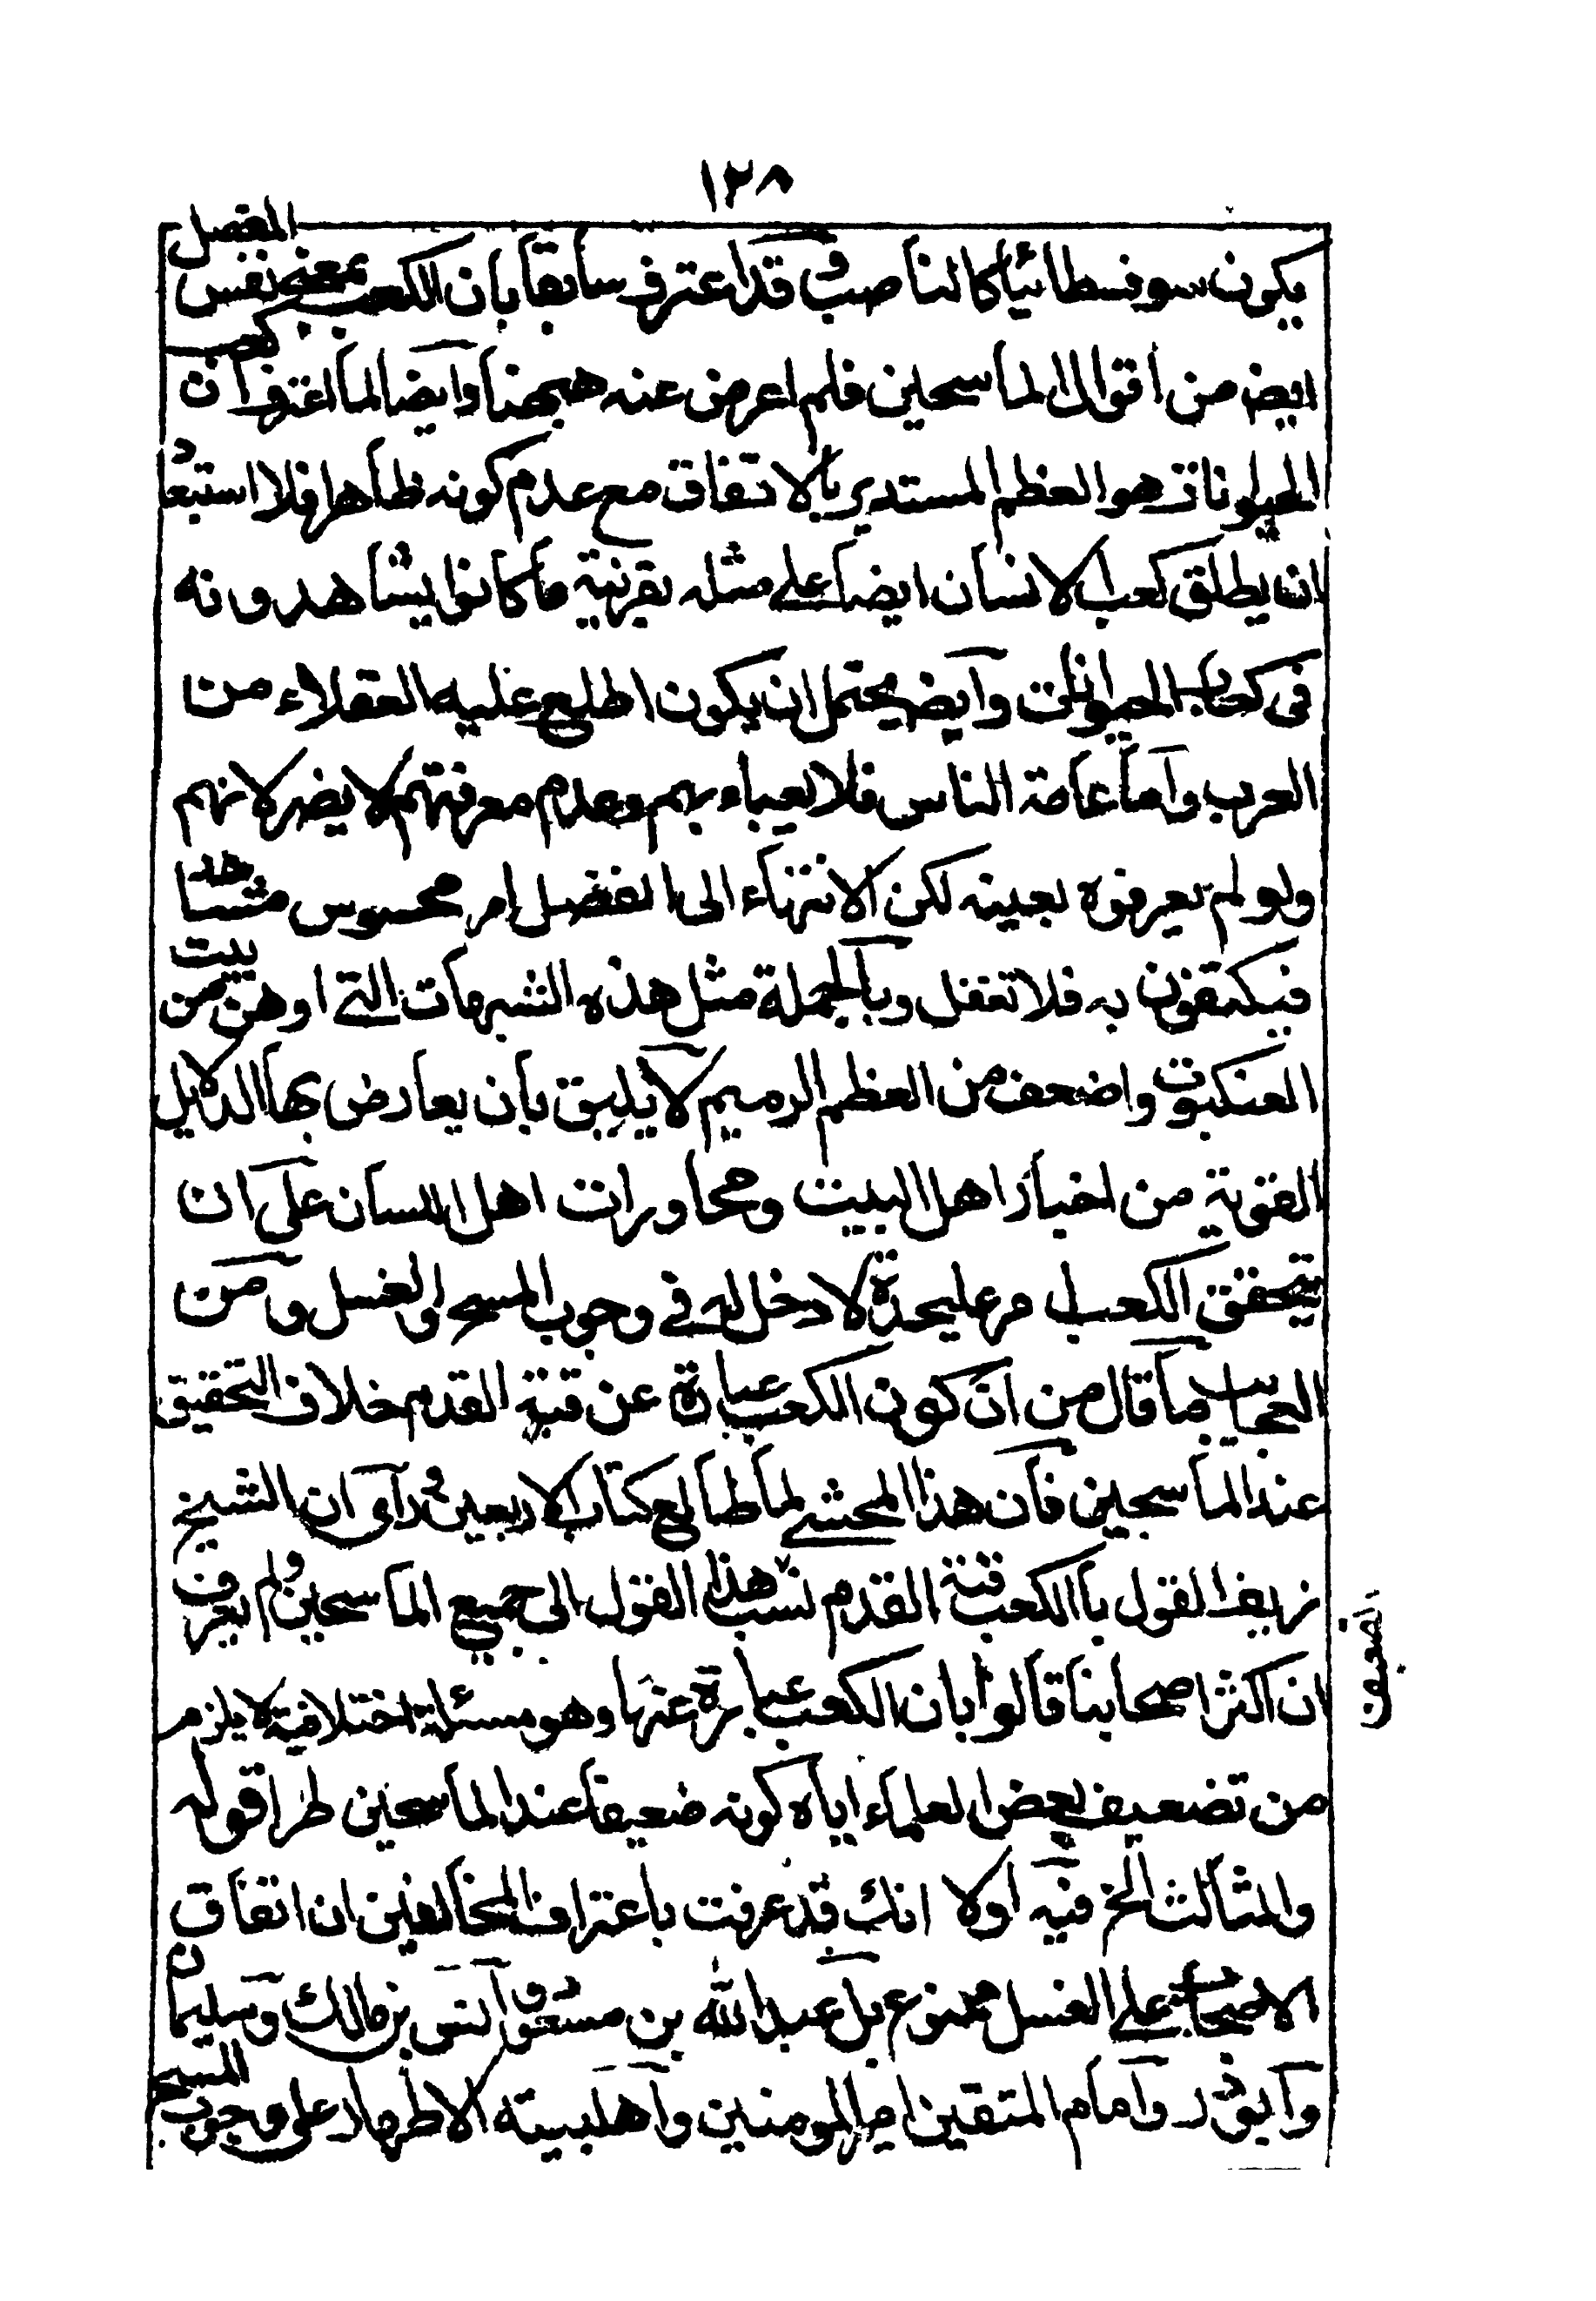 ١٢٨
يكون سوفسطائيا كالناصب وقد اعترف سابقا بان الكعب بمعنى نفس المفصل
ايض من اقوال الماسحين فلم اعرض عنه ههنا وايضا لما اعترف ان كعب
الحيوانات هو العظم المستدير بالاتفاق مع عدم كونه ظاهرا فلا استبعاد
ان يطلق كعب الانسان ايضا على مثله بقرينة ما كانوا يشاهدونه
فى كعاب الحيوانات وايض يحتمل ان يكون اطلع عليه العقلاء من
العرب واما عامة الناس فلا يعباء بهم وعدم معرفتهم لا يضر لانهم
ولو لم يعرفوه بعينه لكن الانتهاء الى المفصل امر محسوس مشاهد
فيكتفون به فلا تغفل وبالجملة مثل هذه الشبهات التى اوهن من بيت
العنكبوت واضعف من العظم الرميم لا يليق بان يعارض بها الدلايل
القوية من اخبار اهل البيت ومحاورات اهل اللسان على ان
تحقق الكعب مرعليحدة لا دخل له فى وجوب المسح والغسل ومن
العجايب ما قال من ان كون الكعب عبارة عن قبة القدم خلاف التحقيق
عند الماسحين فان هذا المحشى لما طالع كتاب الاربعين ورآى ان الشيخ
زيف القول بالكعب قبة القدم نسب هذا القول الى جميع الماسحين ولم يعرف
ان اكثر اصحابنا قالوا بان الكعب عبارة عنها وهو مسئلة اختلافية لا يلزم
من تضعيف بعض العلماء اياه كونه ضعيفا عند الماسحين طرا قوله
والثالث الخ فيه اولا انك قد عرفت باعتراف المخالفين ان اتفاق
الاصحاب على الغسل ممنوع بل عبد الله بن مسعود وانس بن مالك وسليمان
وابوذر وامام المتقين امير المومنين واهلبيته الاطهار على وجوب المسح
تضعيف